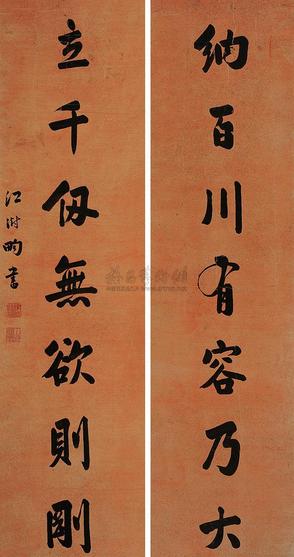 納百川有容乃大
立千仭無欲則剛
江澍畇書